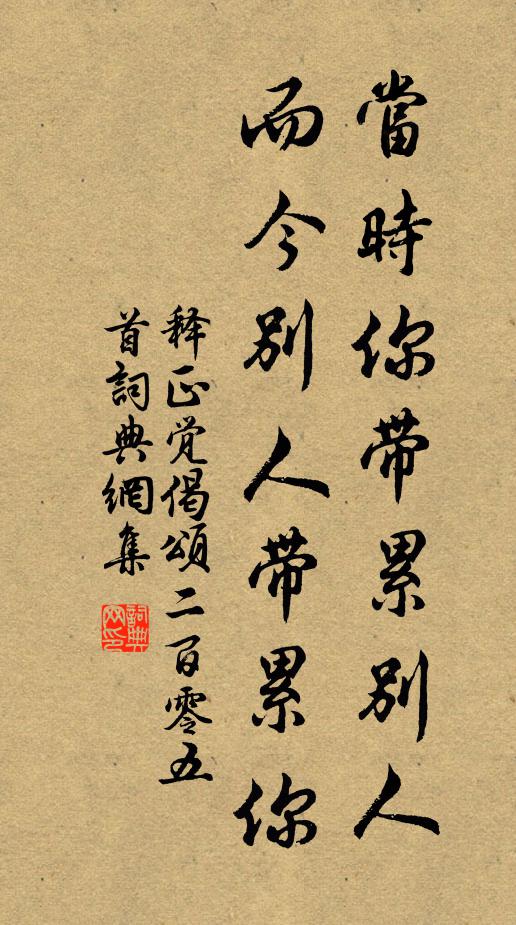 當時你带累別人
而今别人带累你
释正觉偈頌二百零五
首詞典網集
詞典网印